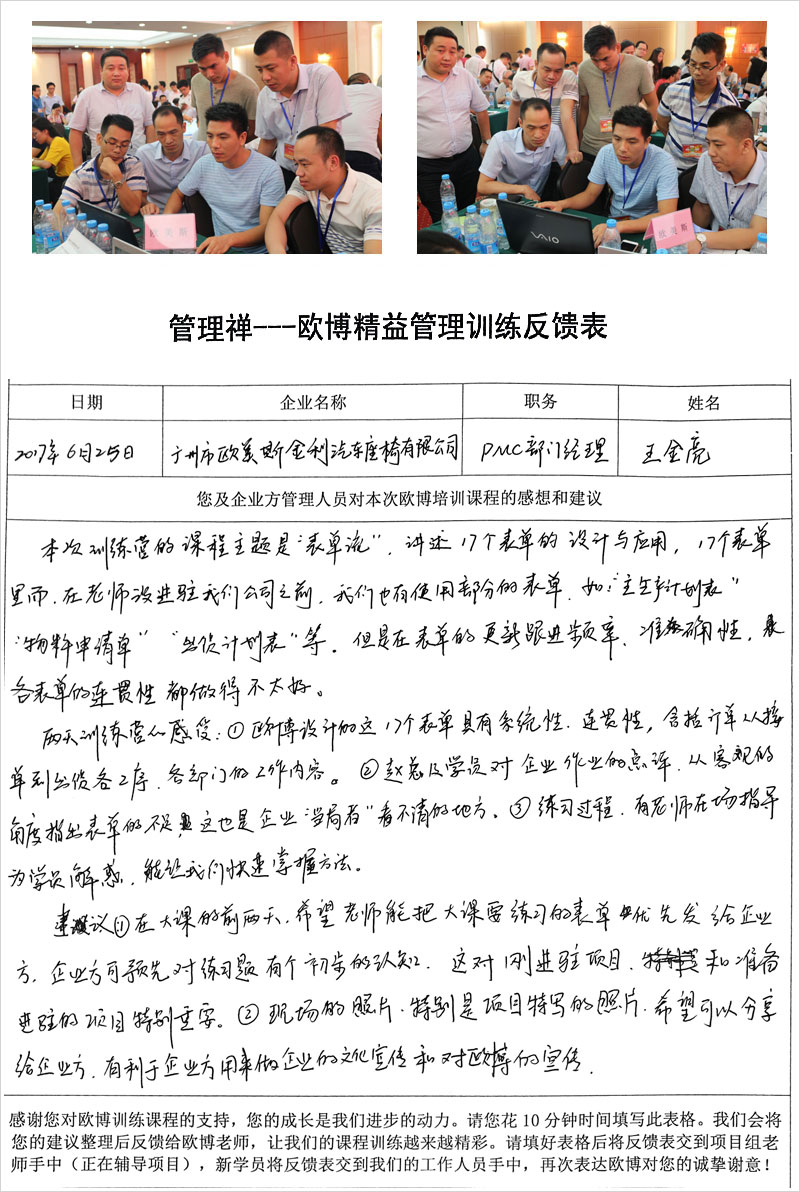 欧美斯
VAIO
欧美斯
管理禅---欧博精益管理训练反馈表
日期 企业名称 职务 姓名
2017年6月25日 广州市欧美斯金利汽车座椅有限公司 PMC部门经理 王金亮
您及企业方管理人员对本次欧博培训课程的感想和建议
本次训练营的课程主题是“表单流”，讲述17个表单的设计与应用，17个表单
里面，在老师没进驻我们公司之前，我们也有使用部分的表单，如：“主生产计划表”
“物料申请单”“出货计划表”等，但是在表单的更新跟进频率、准确性，
各表单的连贯性都做得不太好。
两天训练营的感受：①欧博设计的这17个表单具有系统性、连贯性，含括订单从接
单到出货各工序、各部门的工作内容。②赵总及学员对企业作业的点评，从客观的
角度指出表单的不足，这也是企业“当局者”看不清的地方。③练习过程，有老师在场指导
为学员解惑，能让我们快速掌握方法。
建议①在大课的前两天，希望老师能把大课要练习的表单优先发给企业
方，企业方可预先对练习题有个初步的认知，这对刚进驻项目、和准备
进驻的项目特别重要。②现场的照片，特别是项目特写的照片，希望可以分享
给企业方，有利于企业方用来做企业的文化宣传和对欧博的宣传。
感谢您对欧博训练课程的支持，您的成长是我们进步的动力。请您花10分钟时间填写此表格。我们会将
您的建议整理后反馈给欧博老师，让我们的课程训练越来越精彩。请填好表格后将反馈表交到项目组老
师手中（正在辅导项目），新学员将反馈表交到我们的工作人员手中，再次表达欧博对您的诚挚谢意！